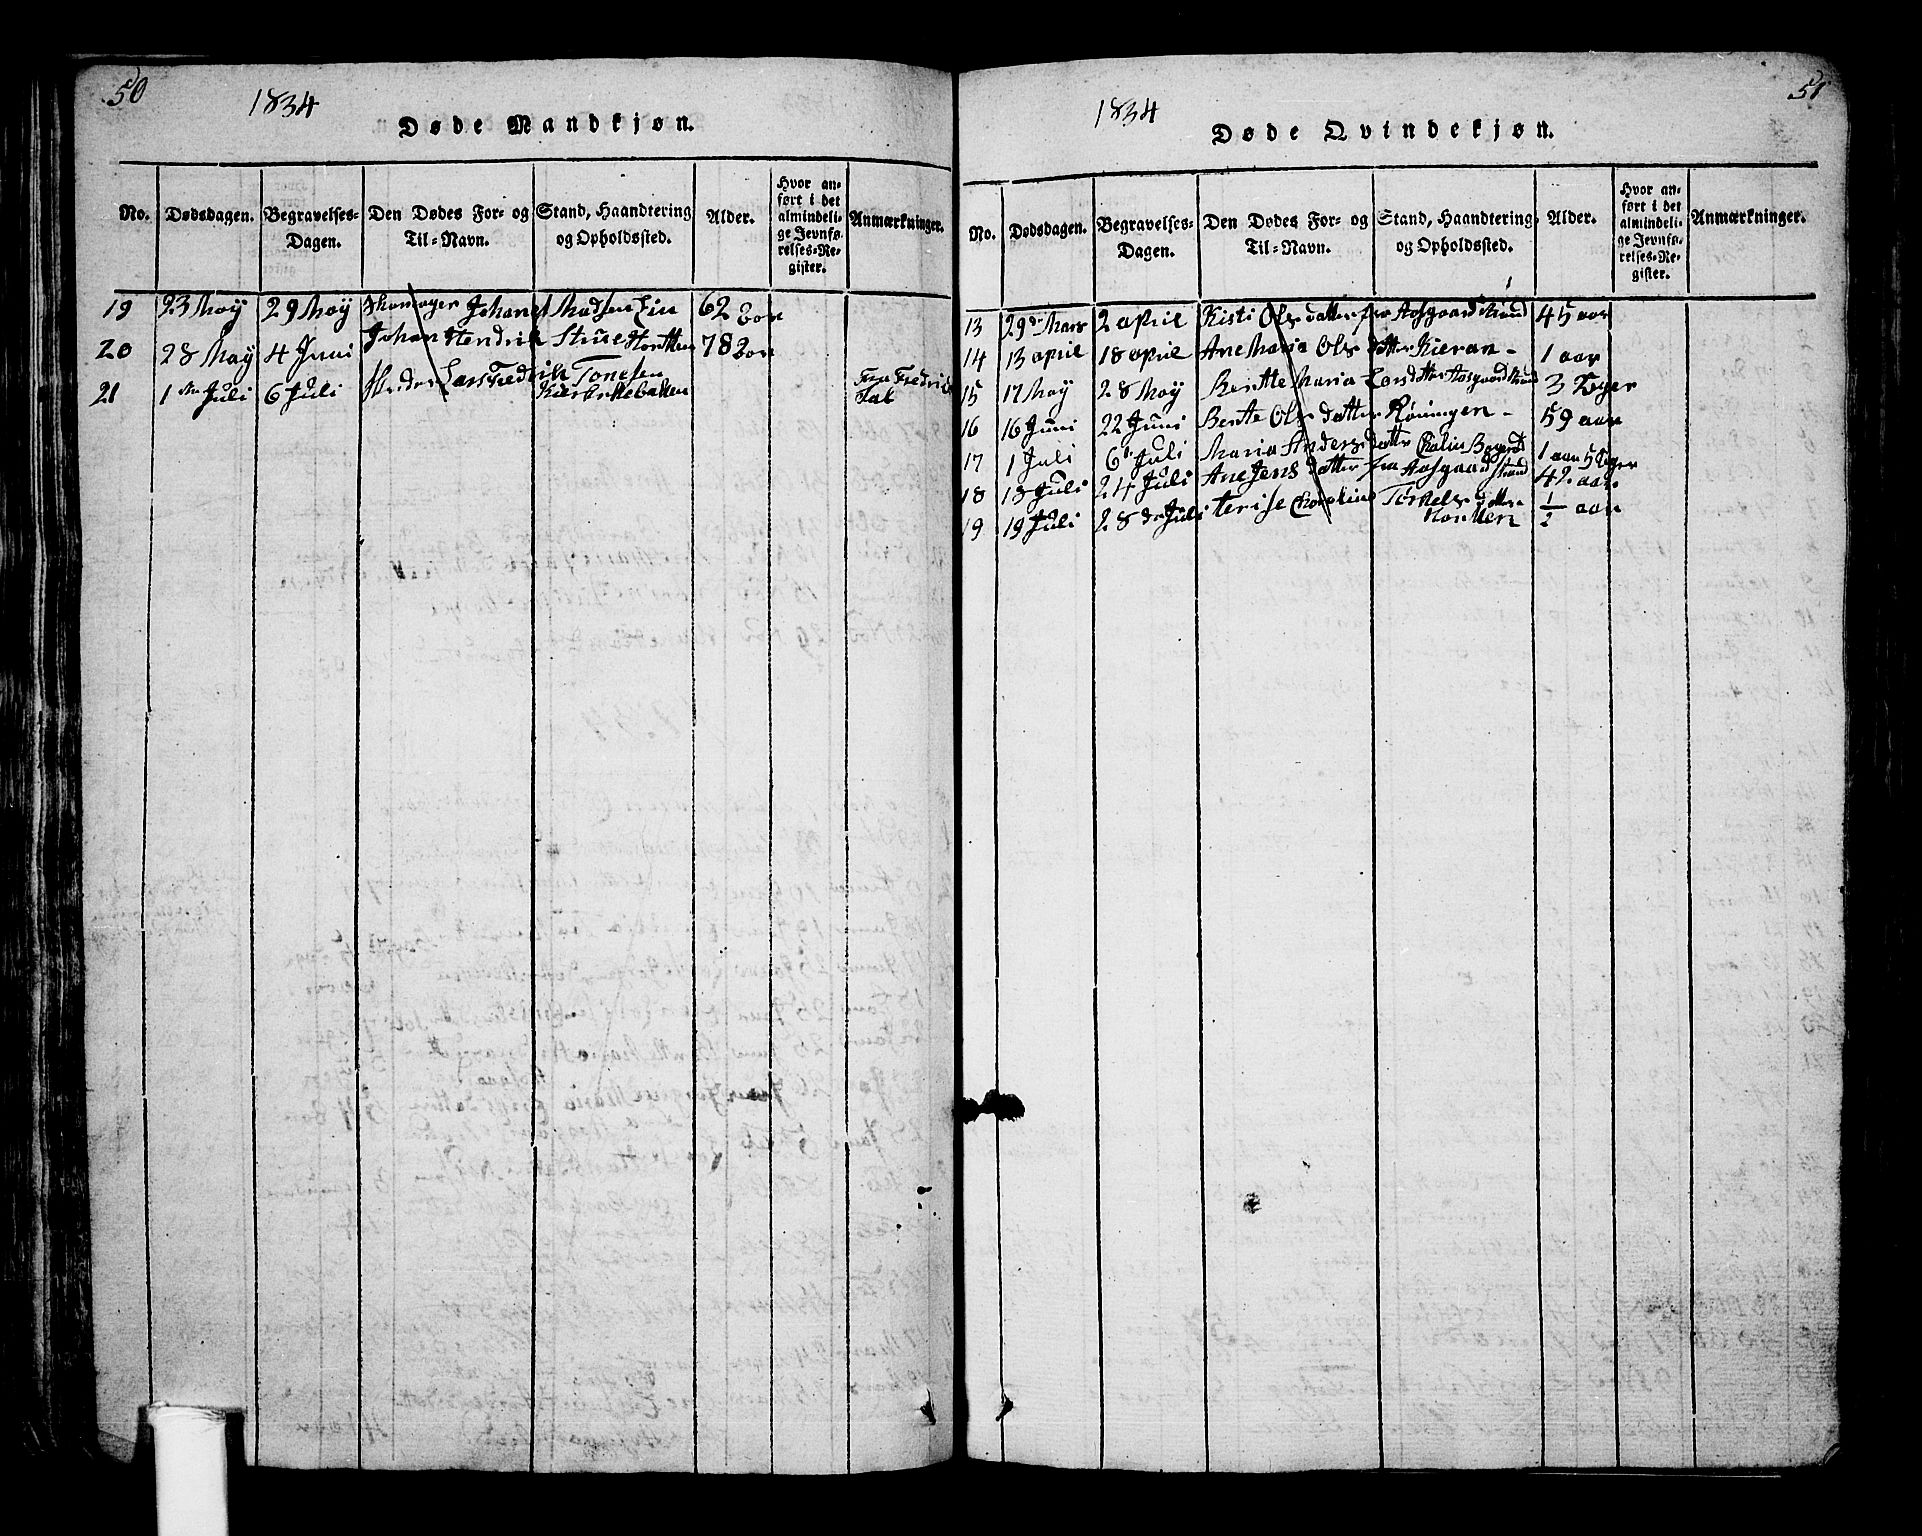 50
1834
Døde Mandkjøn.
No. Dødsdagen. Begravelses-Dagen. Den Dødes For- og Til-Navn. Stand, Haandtering og Opholdssted. Alder. Hvor anført i det almindelige Jevnførelses-Register. Anmærkninger.
19 23 May 29 May Johan Madsen 62 aar
20 28 May 4 Juni Johan Hendrik Hortten 78 aar
21 1 Juli 6 Juli Lars Fredrik Tonesen
51
1834
Døde Qvindekjøn.
No. Dødsdagen. Begravelses-Dagen. Den Dødes For- og Til-Navn. Stand, Haandtering og Opholdssted. Alder. Hvor anført i det almindelige Jevnførelses-Register. Anmærkninger.
13 29 Mars 2 april Kisti Ols datter fra Aasgaardstrand 45 aar
14 13 april 18 april Ane Maria Ols datter Kieran - 1 aar
15 17 May 28 May Bentte Maria Lars datter Aasgaardstrand 3 Uger
16 16 Juni 22 Juni Bente Ols datter Røningen - 59 aar
17 1 Juli 6 Juli Maria Anders datter 1 aar 5 Uger
18 13 Juli 24 Juli Ane Jens datter fra Aasgaardstrand 42 aar
19 19 Juli 28 Juli terise Torkels datter 1/2 aar
Hortten